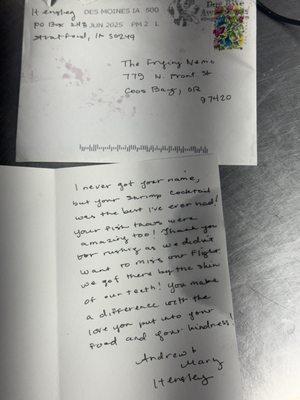 H ensley
PO BOX 248
Stratford, IA 50249
DES MOINES IA 500
JUN 2025 PM 2 L
The Frying Nemo
779 N. Front St
Coos Bay, OR
97420
I never got your name,
but your shrimp cocktail
was the best I've ever had!
your fish tacos were
amazing too! Thank you
for rushing as we didn't
want to miss our flight
we got there by the skin
of our teeth! you make
a difference with the
love you put into your
food and your kindness!
Andrew &
Mary
Hensley